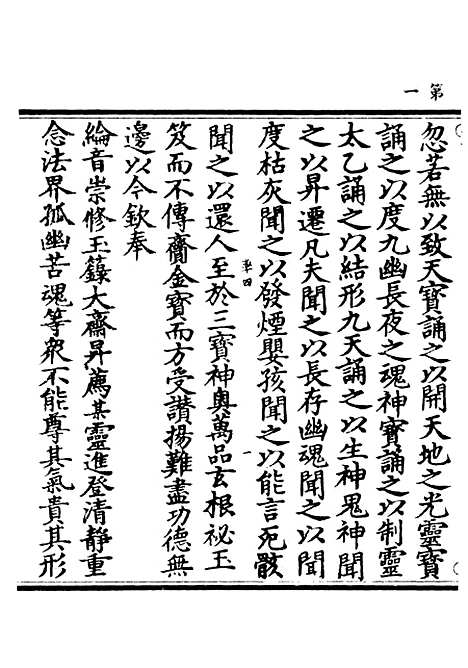 第一
忽若無以致天寶誦之以開天地之光靈寶
誦之以度九幽長夜之魂神寶誦之以制靈
太乙誦之以結形九天誦之以生神鬼神聞
之以昇遷凡夫聞之以長存幽魂聞之以聞
度枯灰聞之以發煙嬰孩聞之以能言死骸
聞之以還人至於三寶神奧萬品玄根祕玉
笈而不傳齎金寶而方受讃揚難盡功德無
邊以今欽奉
綸音崇修玉籙大齋昇薦某靈進登清静重
念法界孤幽苦魂等衆不能尊其氣貴其形